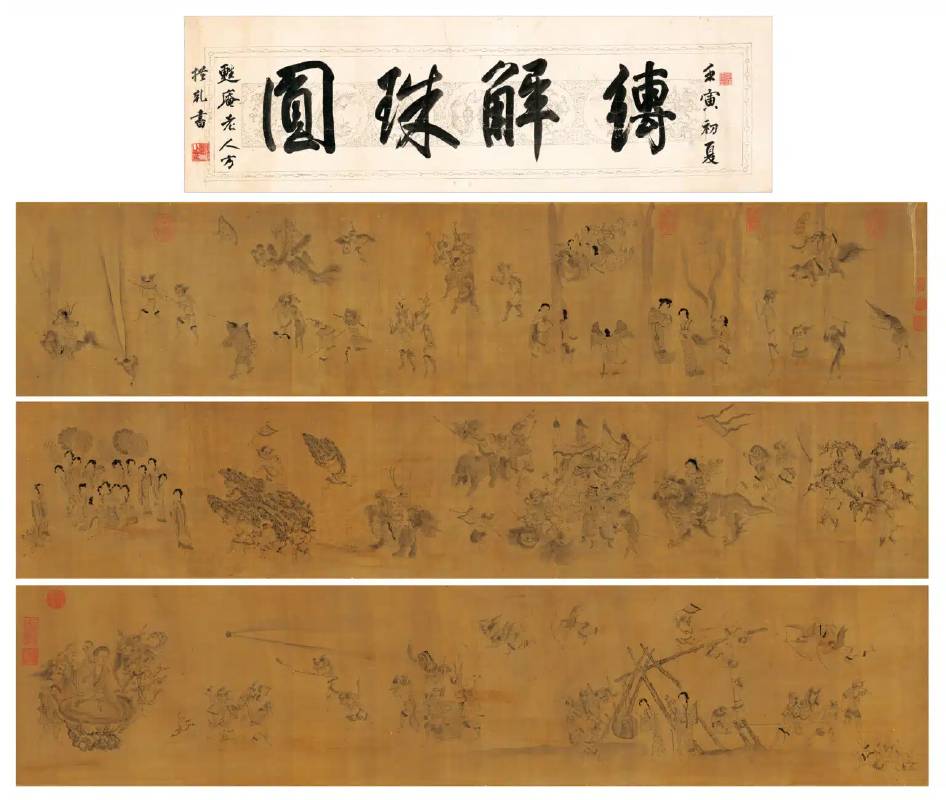 壬寅初夏
縛解珠圓
甦庵老人方
拱乾書